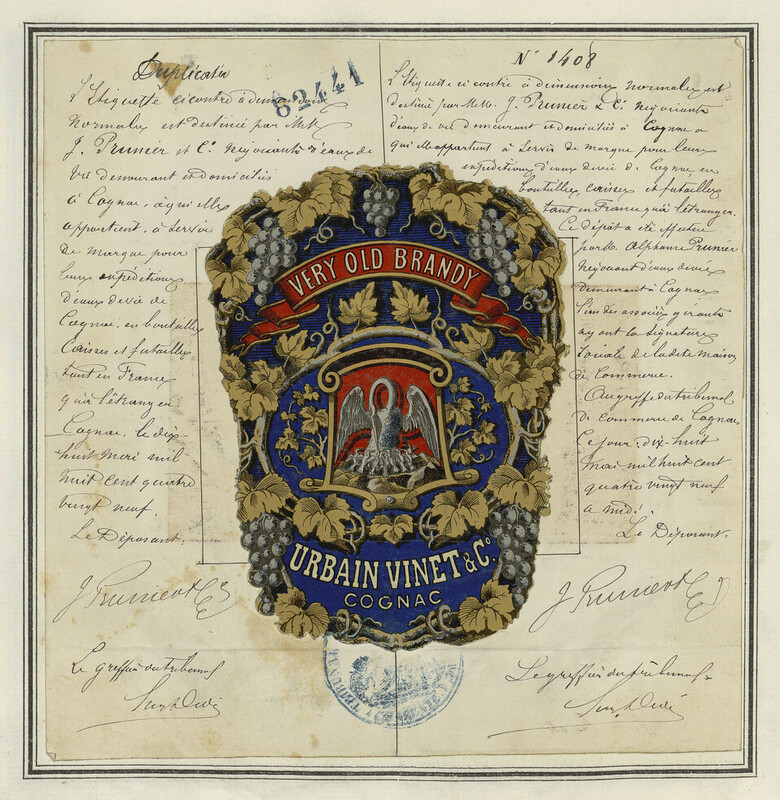 Duplicata
82441
L'Étiquette ci contre à dimensions
normales est destinée par MM.
J. Prunier et Cie. négociants d'eaux de
vie demeurant et domiciliés
à Cognac, à qui elle
appartient, à servir
de marque pour
leurs expéditions
d'eaux de vie de
Cognac, en bouteilles
Caisses et futailles
tant en France
qu'à l'étranger
Cognac, le dix
huit mai mil
huit cent quatre
vingt neuf.
Le Déposant.
J. Prunier & Cie
Le greffier du tribunal
No 1408
L'Étiquette ci contre à dimensions normales est
destinée par MM. J. Prunier & Cie. négociants
d'eaux de vie demeurant et domiciliés à Cognac a
qui elle appartient à servir de marque pour leurs
expéditions d'eaux de vie de Cognac en
bouteilles, caisses et futailles
tant en France qu'à l'étranger.
Ce dépôt a été effectué
par M. Alphonse Prunier
négociant d'eaux de vie
demeurant à Cognac
l'un des associés gérants
ayant la signature
sociale de la dite maison
de Commerce.
Au greffe du tribunal
de commerce de Cognac
Ce jour, dix-huit
mai mil huit cent
quatre vingt neuf
a midi.
Le Déposant.
J. Prunier & Cie
Le greffier du tribunal
VERY OLD BRANDY
URBAIN VINET & Co.
COGNAC